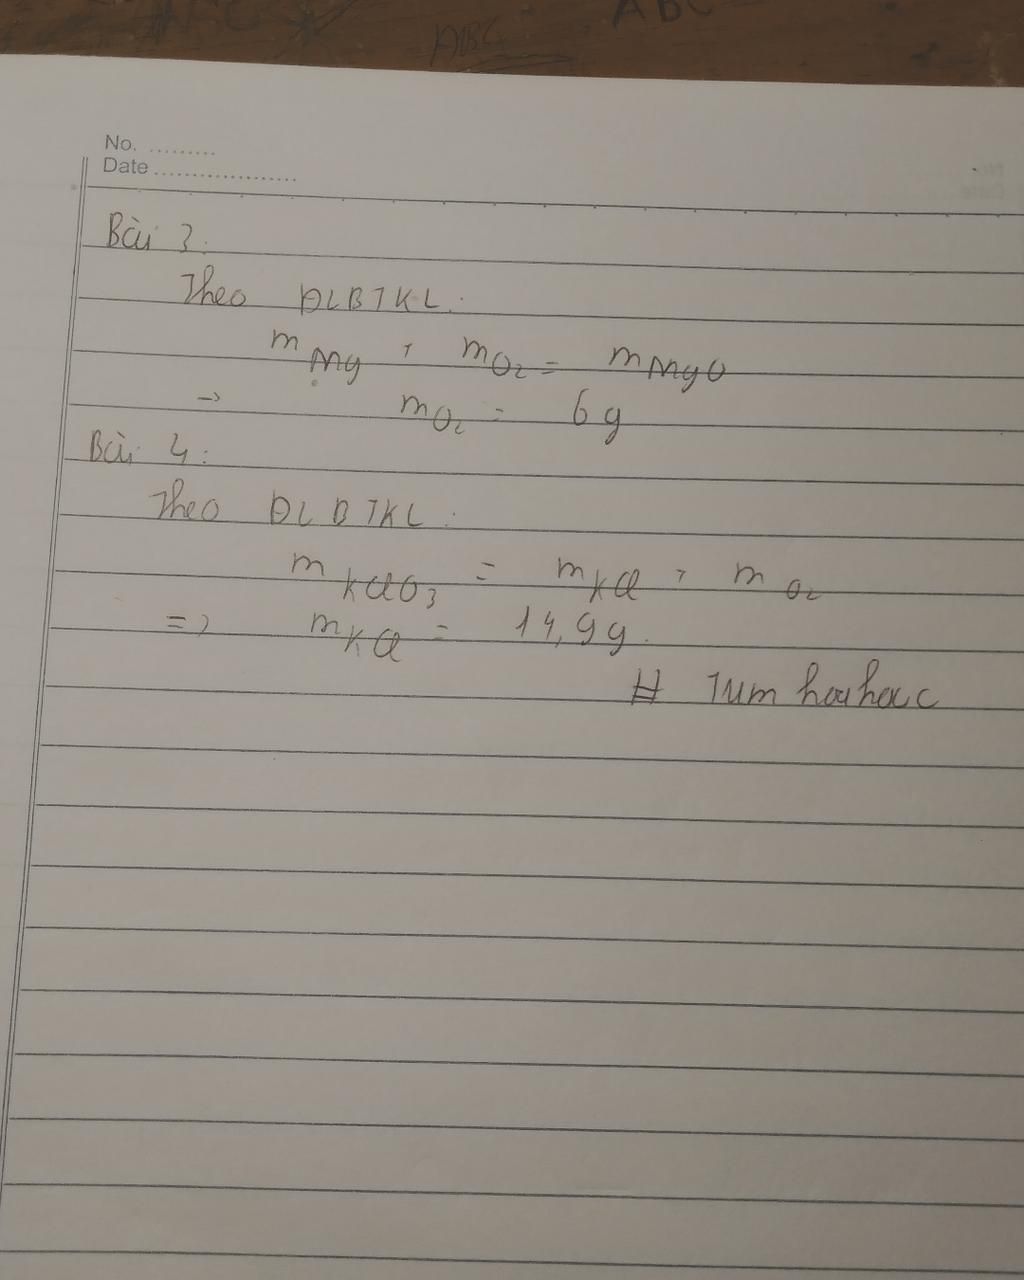 ABC
ABC
No. .........
Date ..................
Bài 3:
Theo ĐLBTKL:
m Mg + m O₂ = m MgO
→ m O₂ = 6 g
Bài 4:
Theo ĐLBTKL:
m KClO₃ = m KCl + m O₂
=> m KCl = 14,9 g.
# Tum hoa hoc